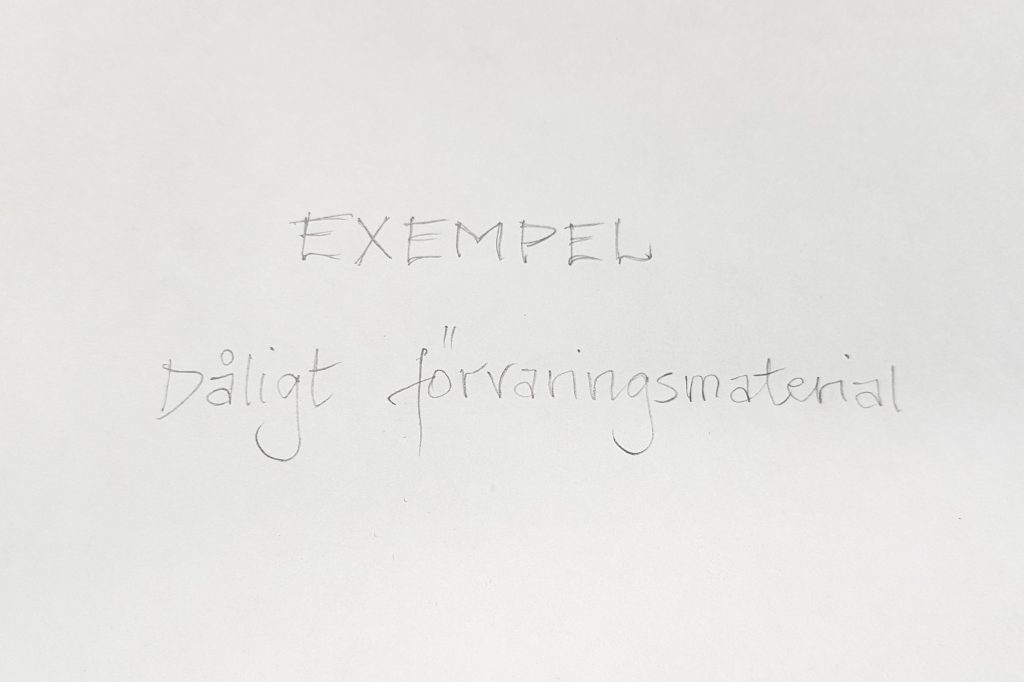 EXEMPEL
Dåligt förvaringsmaterial